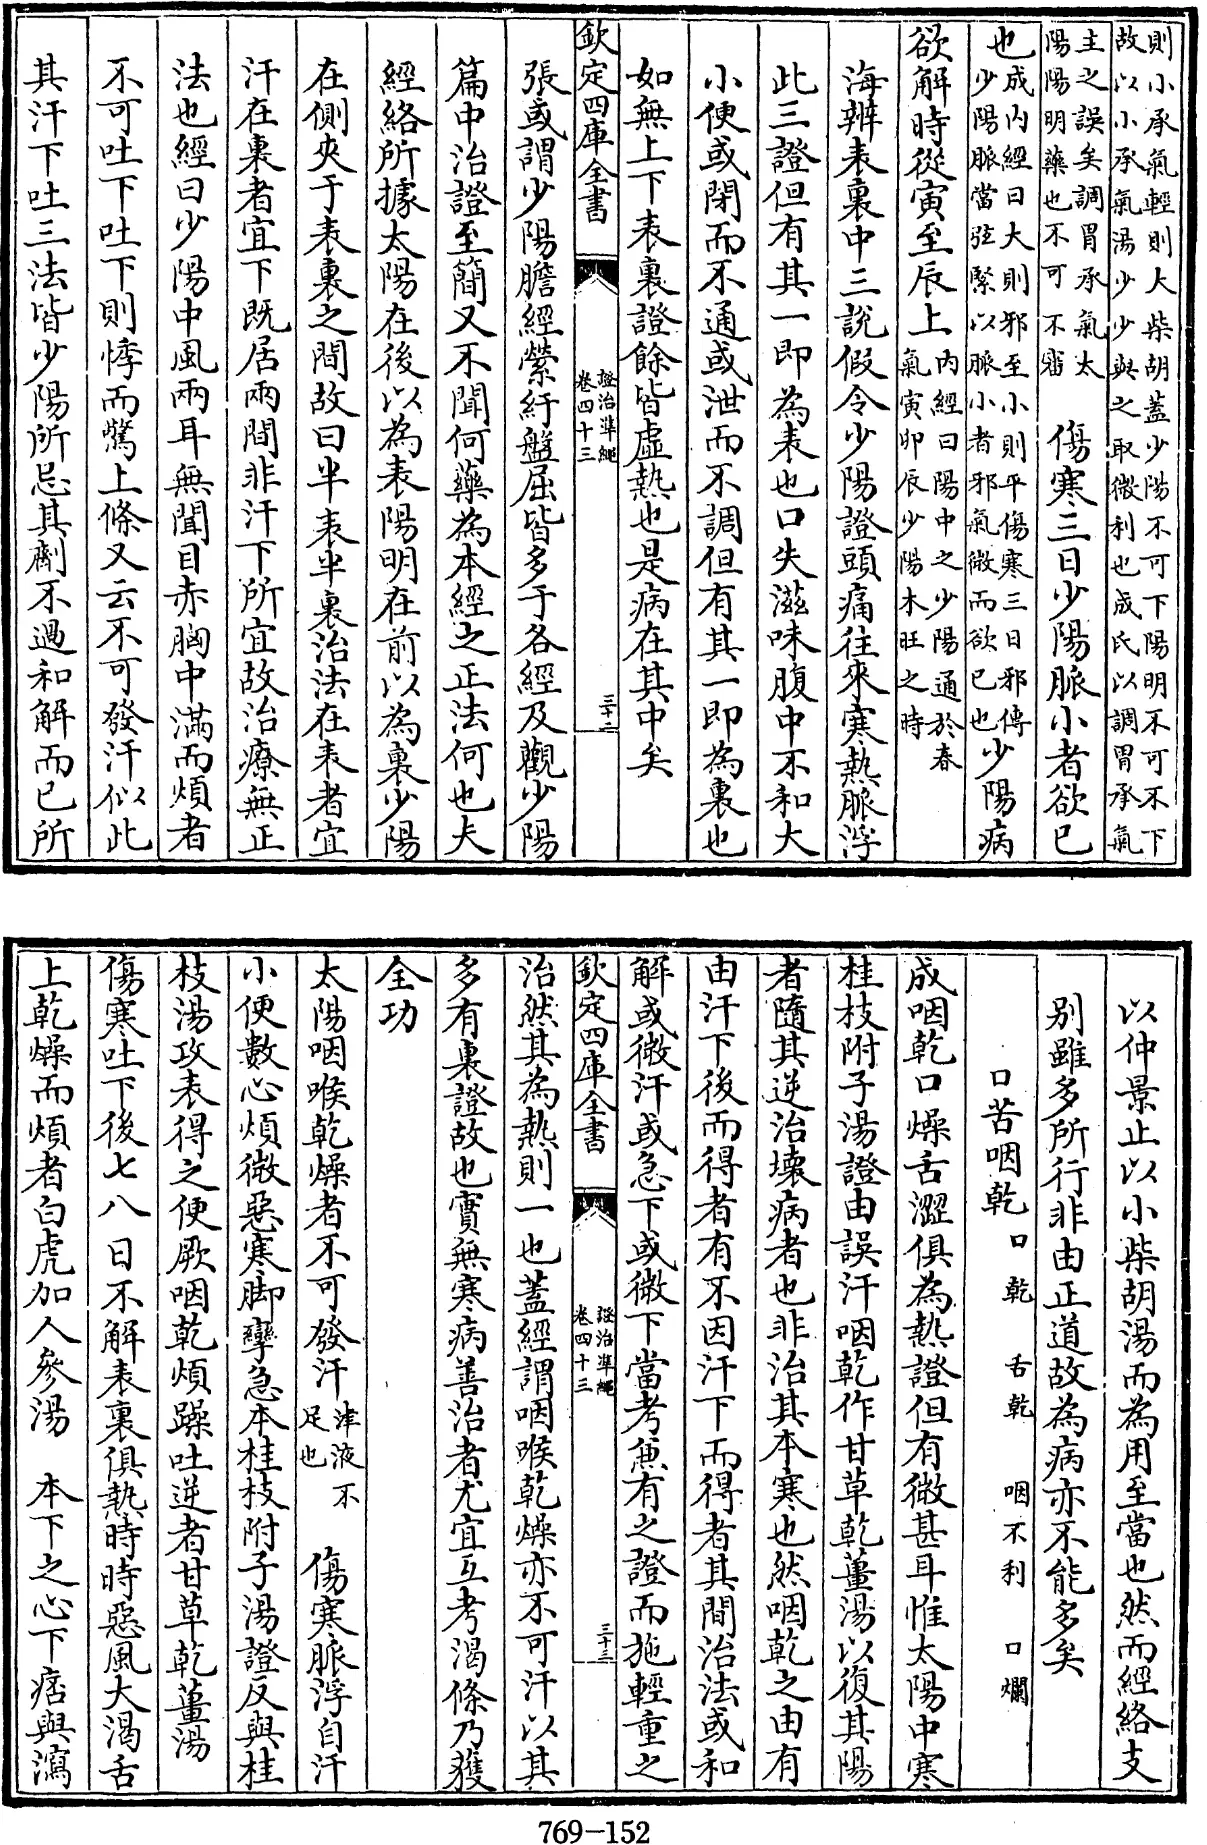 則小承氣輕則大柴胡蓋少陽不可下陽明不可不下
故以小承氣湯少少與之取微利也成氏以調胃承氣
主之誤矣調胃承氣太
陽陽明藥也不可不審
傷寒三日少陽脈小者欲已
也
成内經曰大則邪至小則平傷寒三日邪傳
少陽脈當弦緊以脈小者邪氣微而欲已也
少陽病
欲解時從寅至辰上
内經曰陽中之少陽通於春
氣寅卯辰少陽木旺之時
海辨表裏中三說假令少陽證頭痛往來寒熱脈浮
此三證但有其一即為表也口失滋味腹中不和大
小便或閉而不通或泄而不調但有其一即為裏也
如無上下表裏證餘皆虛熱也是病在其中矣
欽定四庫全書
證治準繩
卷四十三
三十二
張或謂少陽膽經縈紆盤屈皆多于各經及觀少陽
篇中治證至簡又不聞何藥為本經之正法何也夫
經絡所據太陽在後以為表陽明在前以為裏少陽
在側夾于表裏之間故曰半表半裏治法在表者宜
汗在裏者宜下既居兩間非汗下所宜故治療無正
法也經曰少陽中風兩耳無聞目赤胸中滿而煩者
不可吐下吐下則悸而驚上條又云不可發汗似此
其汗下吐三法皆少陽所忌其劑不過和解而已所
以仲景止以小柴胡湯而為用至當也然而經絡支
别雖多所行非由正道故為病亦不能多矣
口苦咽乾 口乾 舌乾 咽不利 口爛
成咽乾口燥舌澀俱為熱證但有微甚耳惟太陽中寒
桂枝附子湯證由誤汗咽乾作甘草乾薑湯以復其陽
者隨其逆治壞病者也非治其本寒也然咽乾之由有
由汗下後而得者有不因汗下而得者其間治法或和
解或微汗或急下或微下當考兼有之證而施輕重之
欽定四庫全書
證治準繩
卷四十三
三十三
治然其為熱則一也蓋經謂咽喉乾燥亦不可汗以其
多有裏證故也實無寒病善治者尤宜互考渴條乃獲
全功
太陽咽喉乾燥者不可發汗
津液不
足也
傷寒脈浮自汗
小便數心煩微惡寒脚攣急本桂枝附子湯證反與桂
枝湯攻表得之便厥咽乾煩躁吐逆者甘草乾薑湯
傷寒吐下後七八日不解表裏俱熱時時惡風大渴舌
上乾燥而煩者白虎加人參湯 本下之心下痞與瀉
769-152